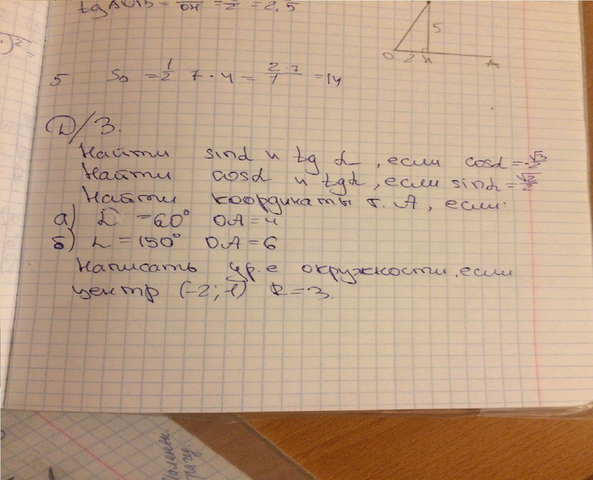 tg AOB = /OH = /2 = 2,5
5
O 2 H A
5 S△ = 1/2 7 · 4 = 2·7/1 = 14
Д/З.
Найти sinα и tg α, если cosα =
Найти cosα и tgα, если sinα =
Найти координаты т. А, если:
а) α = 60° OA = 4
б) α = 150° OA = 6
Написать ур-е окружности, если
центр (-2; -1) R = 3.